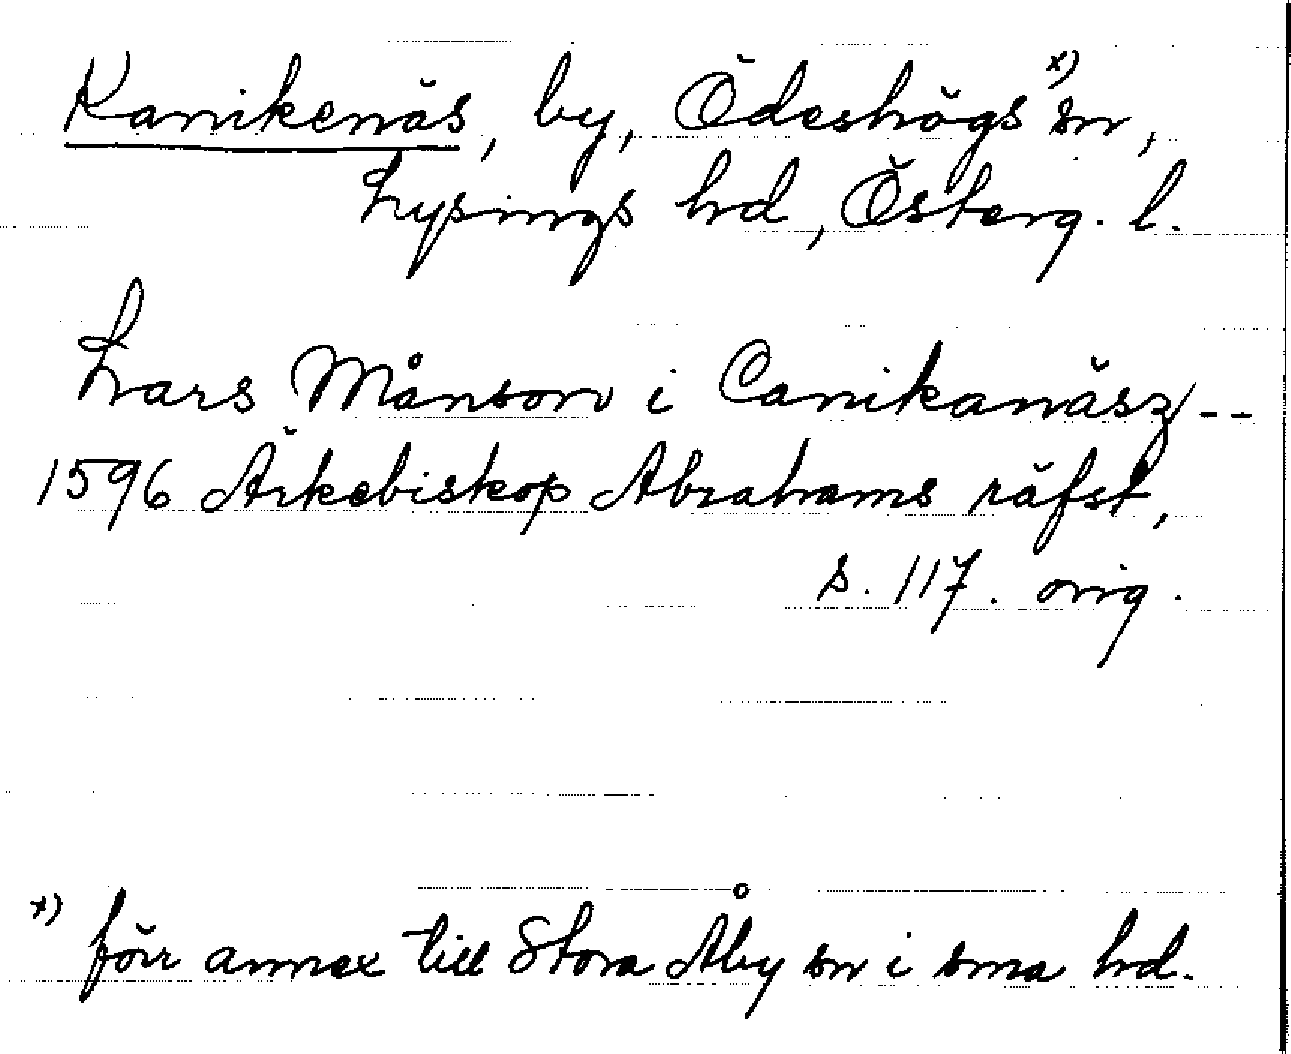 Kanikenäs, by, Ödeshögs x) sn,
Lysings hd, Österg. l.
Lars Månson i Canikanäsz --
1596 Ärkebiskop Abrahams räfst,
s. 117. orig.
x) förr annex till Stora Åby sn i sma hd.